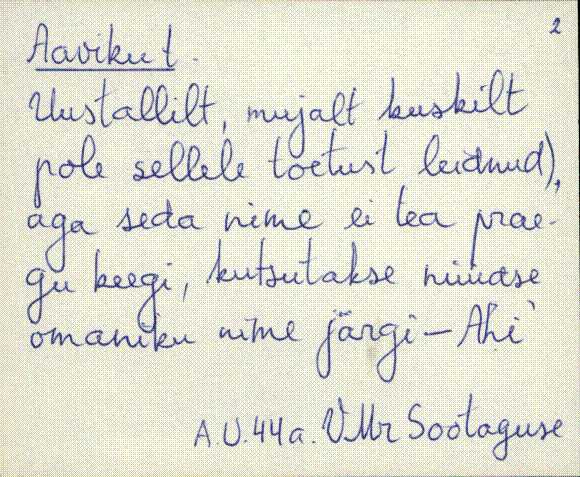 2
Aaviku t.
Uustallilt, mujalt kuskilt
pole sellele toetust leidnud),
aga seda nime ei tea prae-
gu keegi, kutsutakse nüüdse
omaniku nime järgi – Ahi`
A.U. 44a. VMr Sootaguse